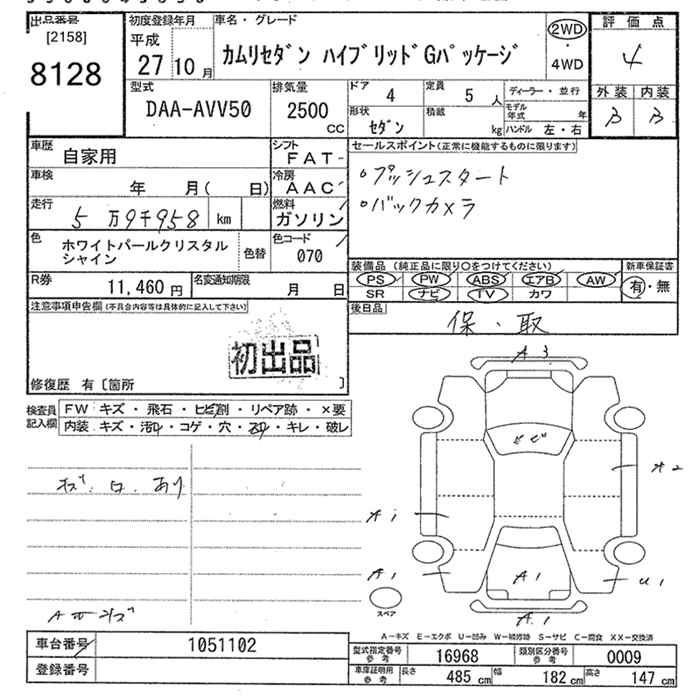 出品番号
[2158]
8128
初度登録年月
平成
27 10 月
車名・グレード
カムリセダン ハイブリッドGパッケージ
2WD
・
4WD
評価点
4
外装 内装
B B
型式
DAA-AVV50
排気量
2500
CC
ドア 4
定員 5 人
ディーラー・並行
形状 セダン
積載 kg
モデル年式 年
ハンドル 左・右
車歴 自家用
シフト FAT
セールスポイント(正常に機能するものに限ります)
。プッシュスタート
。バックカメラ
車検 年 月( 日)
冷房 AAC
走行 5万9千958 km
燃料 ガソリン
色 ホワイトパールクリスタル
シャイン
色替
色コード 070
装備品(純正品に限り○をつけてください)
新車保証書
PS PW ABS エアB AW
SR ナビ TV カワ
有・無
R券 11,460 円
名変通知期限 月 日
後日品
保・取
注意事項申告欄(不具合内容等は具体的に記入して下さい)
初出品
修復歴 有〔箇所 〕
検査員
記入欄
FW キズ・飛石・ヒビ割・リペア跡・×要
内装 キズ・汚れ・コゲ・穴・スレ・キレ・破レ
A3
A2
A1
A1
A1
U1
A1
スペア
A-キズ E-エクボ U-凹み W-補修跡 S-サビ C-腐食 XX-交換済
車台番号 1051102
登録番号
型式指定番号
参考
16968
類別区分番号
参考
0009
車庫証明用
参考
長さ 485 cm
幅 182 cm
高さ 147 cm